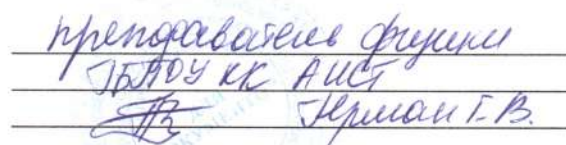 преподаватель физики
ГБПОУ КК АИСТ
Нрман Г.В.